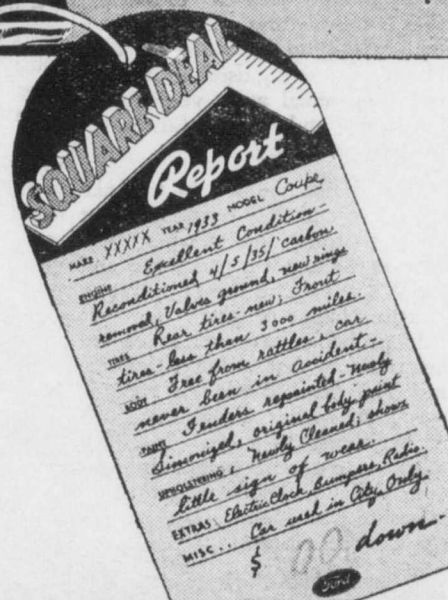 SQUARE DEAL
Report
MAKE XXXXX YEAR 1933 MODEL Coupe
ENGINE Excellent Condition-
Reconditioned 4/5/35/ carbon
removed, Valves ground, new rings
TIRES Rear tires-new; Front
tires-less than 3000 miles.
BODY Free from rattles; car
never been in accident-
PAINT Fenders repainted-Newly
Simonized, original body-paint
UPHOLSTERING, Newly Cleaned; shows
little sign of wear.
EXTRAS Electric Clock, Bumpers, Radio.
MISC.. Car used in City Only.
$ 00 down-
Ford